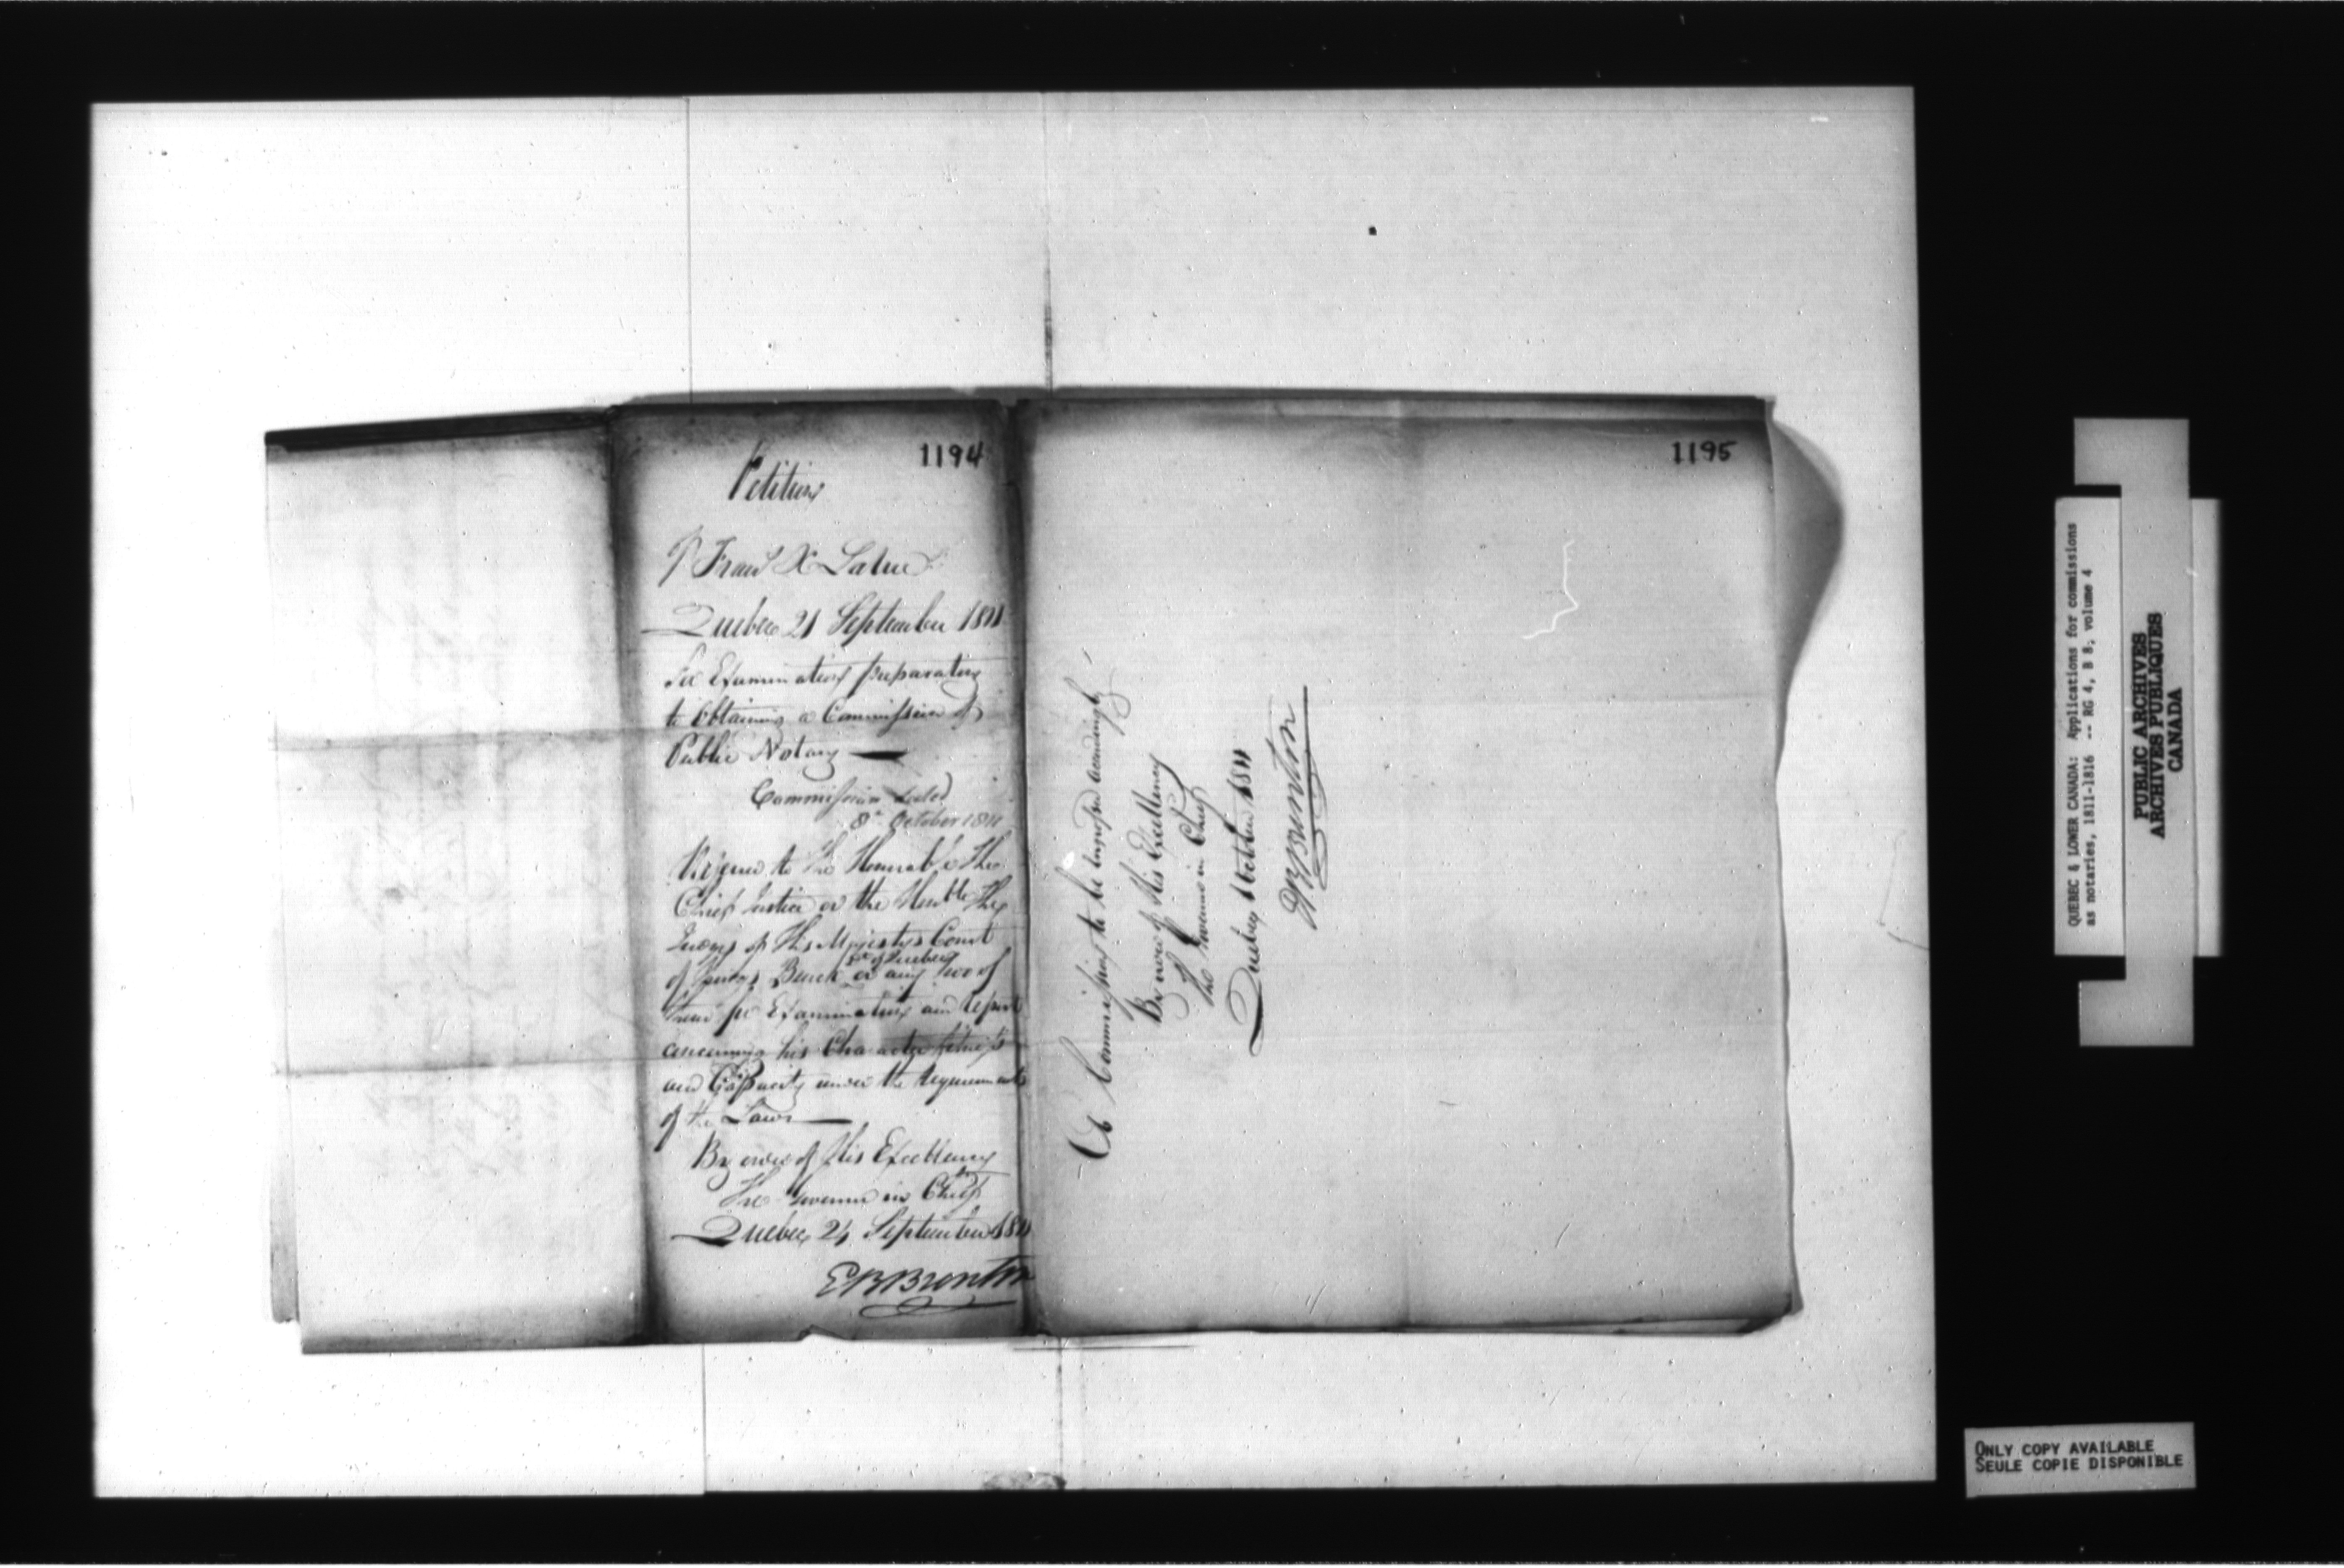 1194
Petition
of Frans X Larue
Quebec 21 September 1811
for Examination preparatory
to Obtaining a Commission of
Public Notary
Commission dated
8th October 1811
Referred to The Honorable The
Chief Justice or the Honble The
Judges of His Majestys Court
of Kings Bench or any two of
for Quebec
them for Examination and report
concerning his Character fitness
and Capacity under the requirements
of the Laws
By order of His Excellency
The Governor in Chief
Quebec 24 September 1811
EBBrenton
1195
A Commission to be engrossed accordingly
By order of His Excellency
The Governor in Chief
Quebec October 1811
EBBrenton
QUEBEC & LOWER CANADA: Applications for commissions
as notaries, 1811-1816 -- RG 4, B 8, volume 4
PUBLIC ARCHIVES
ARCHIVES PUBLIQUES
CANADA
ONLY COPY AVAILABLE
SEULE COPIE DISPONIBLE